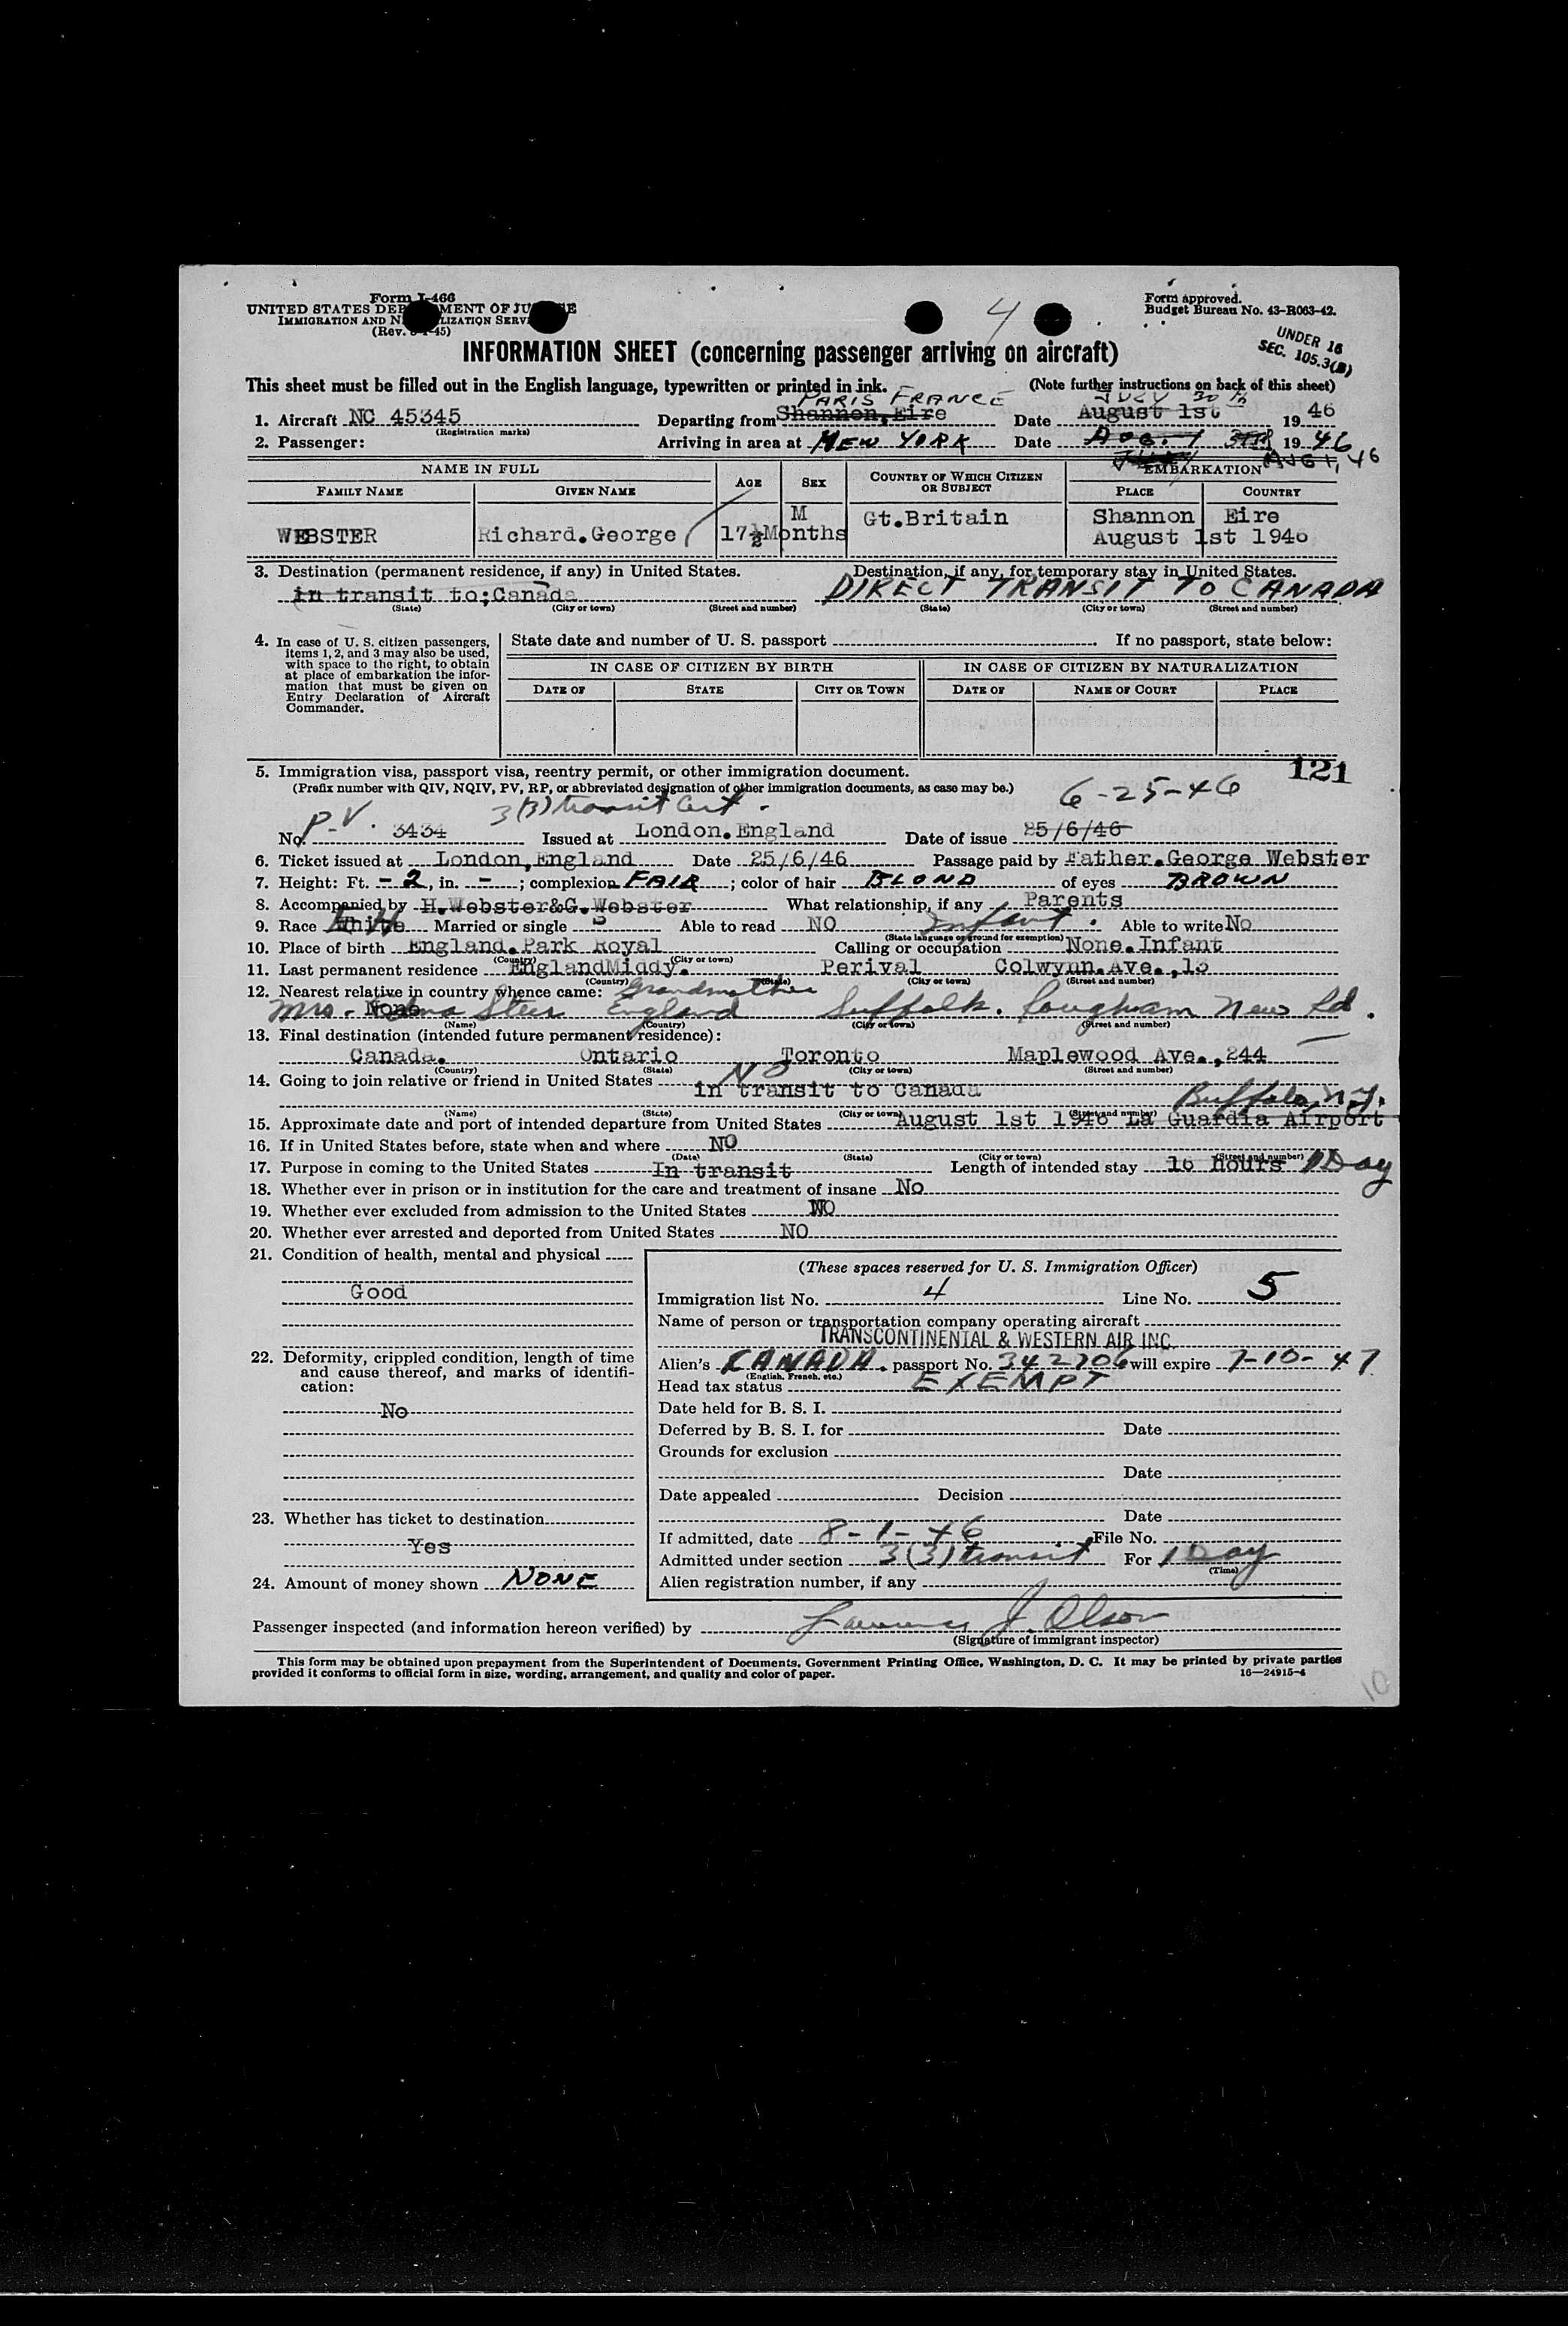 Form I-466
UNITED STATES DEPARTMENT OF JUSTICE
IMMIGRATION AND NATURALIZATION SERVICE
(Rev. -45)
4
Form approved.
Budget Bureau No. 43-R063-42.
UNDER 16
SEC. 105.3(B)
INFORMATION SHEET (concerning passenger arriving on aircraft)
This sheet must be filled out in the English language, typewritten or printed in ink. (Note further instructions on back of this sheet)
PARIS FRANCE JULY 30 th
1. Aircraft NC 45345 Departing from Shannon, Eire Date August 1st 1946
(Registration marks)
2. Passenger: Arriving in area at NEW YORK Date AUG. 1 1946
AUG 1, 46
NAME IN FULL AGE SEX COUNTRY OF WHICH CITIZEN OR SUBJECT EMBARKATION
FAMILY NAME GIVEN NAME PLACE COUNTRY
WEBSTER Richard.George 17½Months M Gt.Britain Shannon Eire
August 1st 1946
3. Destination (permanent residence, if any) in United States. Destination, if any, for temporary stay in United States.
in transit to;Canada DIRECT TRANSIT TO CANADA
(State) (City or town) (Street and number) (State) (City or town) (Street and number)
4. In case of U. S. citizen passengers, items 1, 2, and 3 may also be used, with space to the right, to obtain at place of embarkation the information that must be given on Entry Declaration of Aircraft Commander.
State date and number of U. S. passport If no passport, state below:
IN CASE OF CITIZEN BY BIRTH IN CASE OF CITIZEN BY NATURALIZATION
DATE OF STATE CITY OR TOWN DATE OF NAME OF COURT PLACE
121
5. Immigration visa, passport visa, reentry permit, or other immigration document.
(Prefix number with QIV, NQIV, PV, RP, or abbreviated designation of other immigration documents, as case may be.)
P.V. 3(3) transit Cert. 6-25-46
No. 3434 Issued at London.England Date of issue 25/6/46
6. Ticket issued at London,England Date 25/6/46 Passage paid by Father.George Webster
7. Height: Ft. - 2, in. - ; complexion FAIR ; color of hair BLOND of eyes BROWN
8. Accompanied by H.Webster&G.Webster What relationship, if any Parents
9. Race White Married or single S Able to read NO Infant. Able to write No
(State language or ground for exemption)
10. Place of birth England.Park Royal Calling or occupation None.Infant
(Country) (City or town)
11. Last permanent residence EnglandMiddy. Perival Colwynn.Ave.,13
(Country) (State) (City or town) (Street and number)
12. Nearest relative in country whence came: Grandmother
Mrs. None England Suffolk. Lougham New Rd.
(Name) (Country) (City or town) (Street and number)
13. Final destination (intended future permanent residence):
Canada. Ontario Toronto Maplewood Ave.,244
(Country) (State) (City or town) (Street and number)
14. Going to join relative or friend in United States NO
in transit to Canada
Buffalo, N.Y.
(Name) (State) (City or town) (Street and number)
15. Approximate date and port of intended departure from United States August 1st 1946 La Guardia Airport
16. If in United States before, state when and where NO
(Date) (State) (City or town) (Street and number)
17. Purpose in coming to the United States In transit Length of intended stay 16 hours 1 Day
18. Whether ever in prison or in institution for the care and treatment of insane No
19. Whether ever excluded from admission to the United States NO
20. Whether ever arrested and deported from United States NO
21. Condition of health, mental and physical
Good
22. Deformity, crippled condition, length of time and cause thereof, and marks of identification:
No
23. Whether has ticket to destination
Yes
24. Amount of money shown NONE
(These spaces reserved for U. S. Immigration Officer)
Immigration list No. 4 Line No. 5
Name of person or transportation company operating aircraft
TRANSCONTINENTAL & WESTERN AIR INC.
Alien's CANADA. passport No. 342706 will expire 7-10-47
(English, French, etc.)
Head tax status EXEMPT
Date held for B. S. I.
Deferred by B. S. I. for Date
Grounds for exclusion
Date
Date appealed Decision
Date
If admitted, date 8-1-46 File No.
Admitted under section 3(3) transit For 1 Day
(Time)
Alien registration number, if any
Passenger inspected (and information hereon verified) by Lawrence J. Olson
(Signature of immigrant inspector)
This form may be obtained upon prepayment from the Superintendent of Documents, Government Printing Office, Washington, D. C. It may be printed by private parties
provided it conforms to official form in size, wording, arrangement, and quality and color of paper. 16—24915-4
10